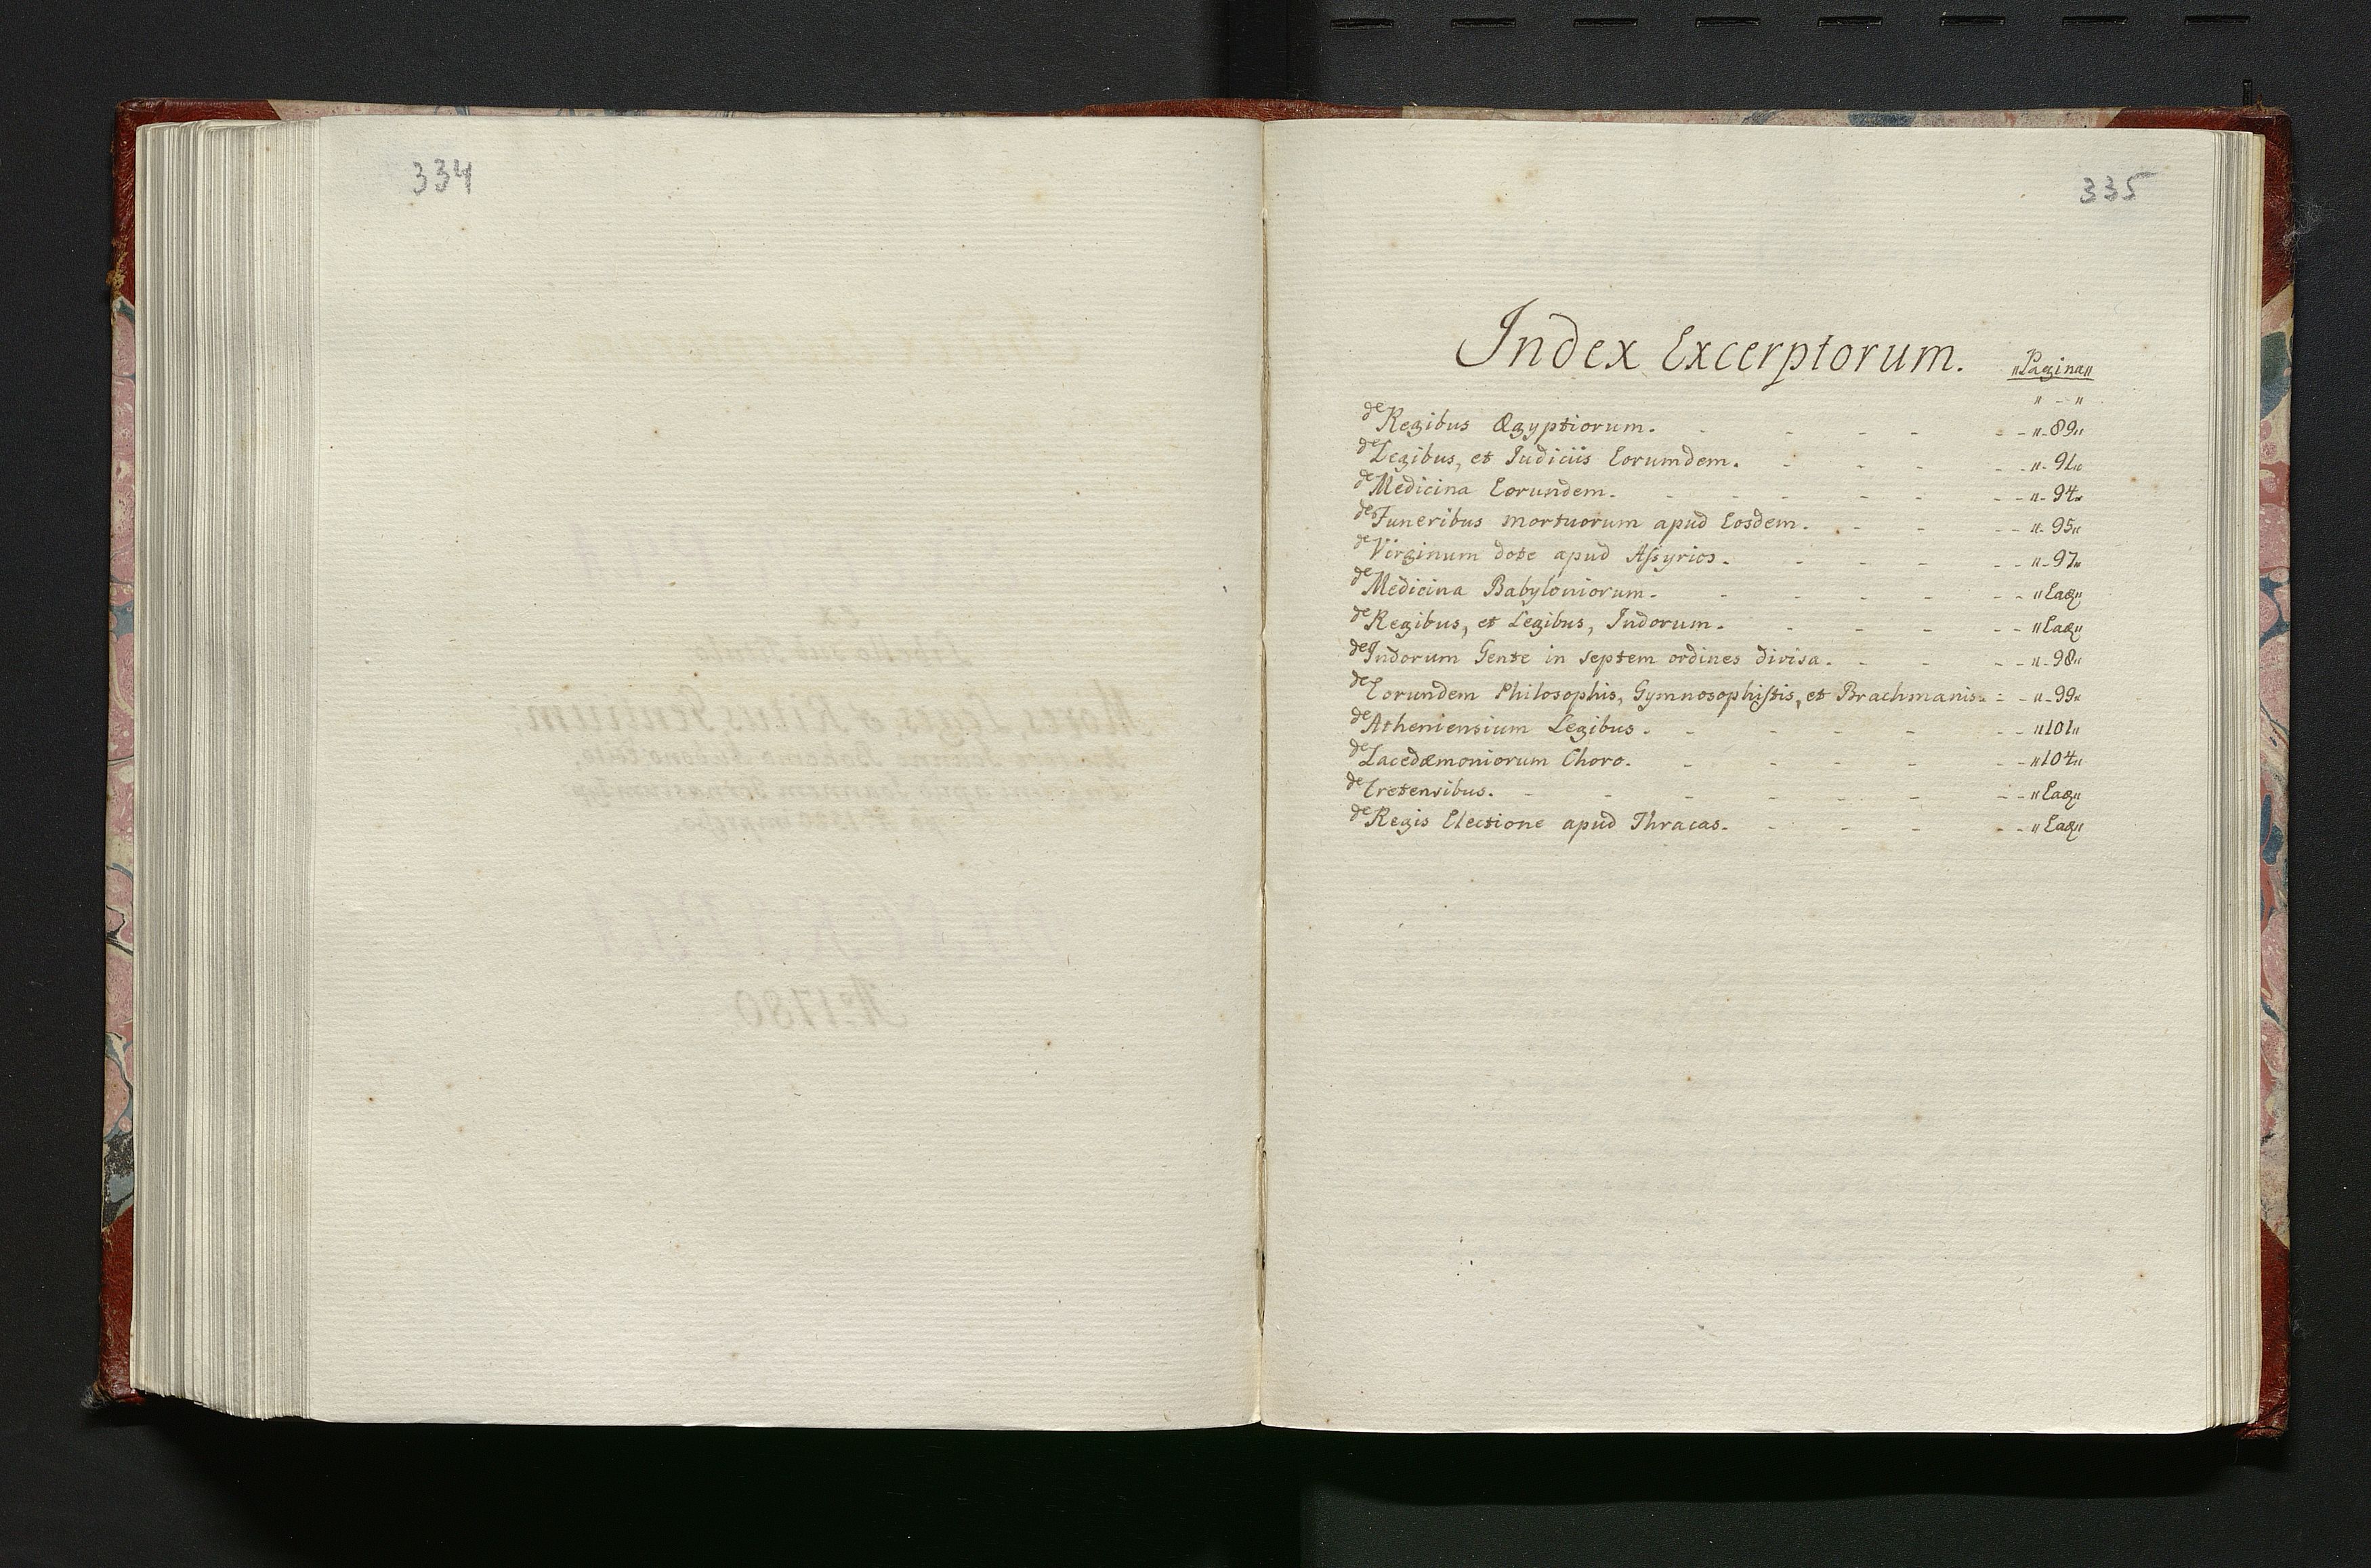 334
335
Index Excerptorum. „Pagina„
„ - „
de Regibus Ægyptiorum. - - - - - - „-89„
de Legibus, et Iudiciis Eorumdem. - - - - - „-91„
de Medicina Eorundem. - - - - - - - „-94„
de Funeribus mortuorum apud Eosdem. - - - - „-95„
de Virginum dote apud Aſsyrios. - - - - - „-97„
de Medicina Babyloniorum. - - - - - - „Ead„
de Regibus, et Legibus, Indorum. - - - - - „Ead„
de Indorum Gente in septem ordines divisa. - - - - „-98„
de Eorundem Philosophis, Gymnosophiſtis, et Brachmanis. - - „-99„
de Atheniensium Legibus. - - - - - - „101„
de Lacedæmoniorum Choro. - - - - - - „104„
de Cretensibus. - - - - - - - - „Ead„
de Regis Electione apud Thracas. - - - - - „Ead„